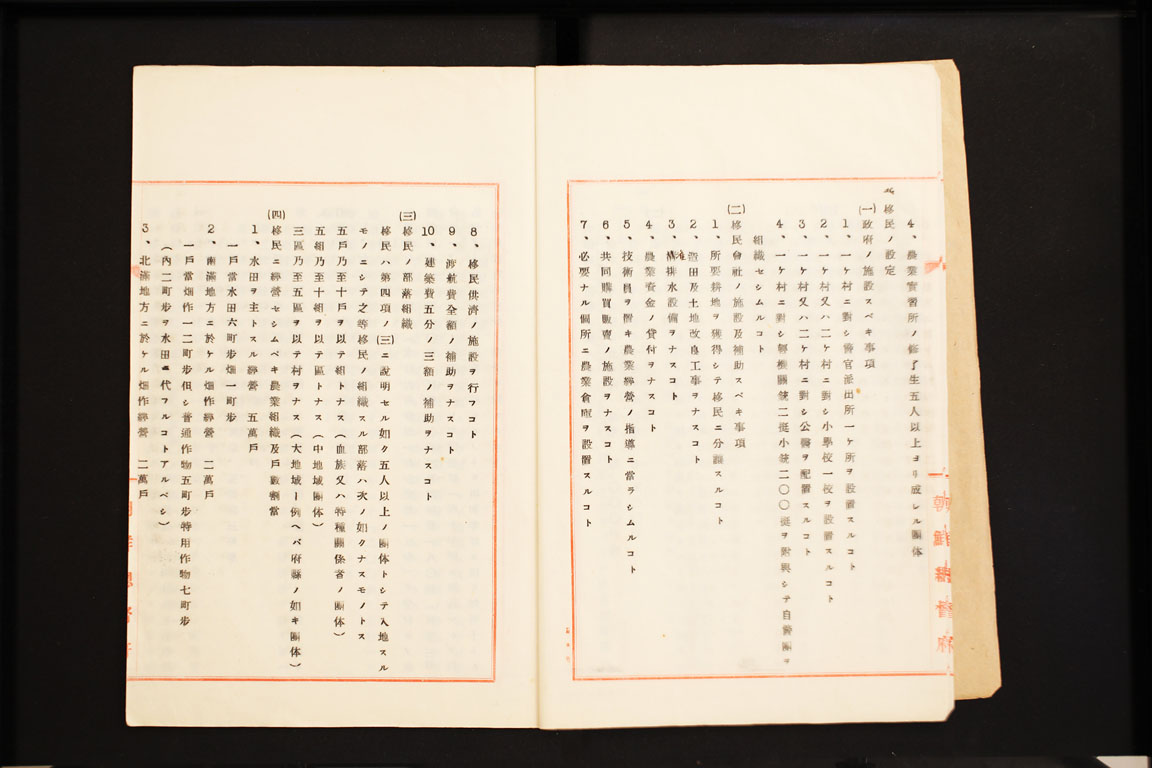 4、農業實習所ノ修了生五人以上ヨリ成シル團体
移民ノ設定
(一)政府ノ施設スベキ事項
1、一ケ村ニ對シ警官派出所一ケ所ヲ設置スルコト
2、一ケ村又ハ二ケ村ニ對シ小學校一校ヲ設置スルコト
3、一ケ村又ハ二ケ村ニ對シ公醫ヲ配置スルコト
4、一ケ村ニ對シ輕機關銃二挺小銃二〇〇挺ヲ附與シテ自警團ヲ
組織セシムルコト
(二)移民會社ノ施設及補助スベキ事項
1、所要耕地ヲ獲得シテ移民ニ分讓スルコト
2、造田及土地改良工事ヲナスコト
3、排水設備ヲナスコト
4、農業資金ノ貸付ヲナスコト
5、技術員ヲ置キ農業經營ノ指導ニ當ラシムルコト
6、共同購買販賣ノ施設ヲナスコト
7、必要ナル個所ニ農業倉庫ヲ設置スルコト
朝鮮總督府
8、移民供濟ノ施設ヲ行フコト
9、渡航費全額ノ補助ヲナスコト
10、建築費五分ノ三額ノ補助ヲナスコト
(三)移民ノ部落組織
移民ハ第四項ノ(三)ニ説明セル如ク五人以上ノ團体トシテ入地スル
モノニシテ之等移民ノ組織スル部落ハ次ノ如クナスモノトス
五戸乃至十戸ヲ以テ組トナス(血族又ハ特種關係者ノ團体)
五組乃至十組ヲ以テ區トナス(中地域團体)
三區乃至五區ヲ以テ村ヲナス(大地域ー例ヘバ府縣ノ如キ團体)
(四)移民ニ經營セシムベキ農業組織及戸數割當
1、水田ヲ主トスル經營 五萬戸
一戸當水田六町歩畑一町歩
2、南滿地方ニ於ケル畑作經營 二萬戸
一戸當畑作一二町歩但シ普通作物五町歩特用作物七町歩
(内二町歩ヲ水田ニ代フルコトアルベシ)
3、北滿地方ニ於ケル畑作經營 二萬戸